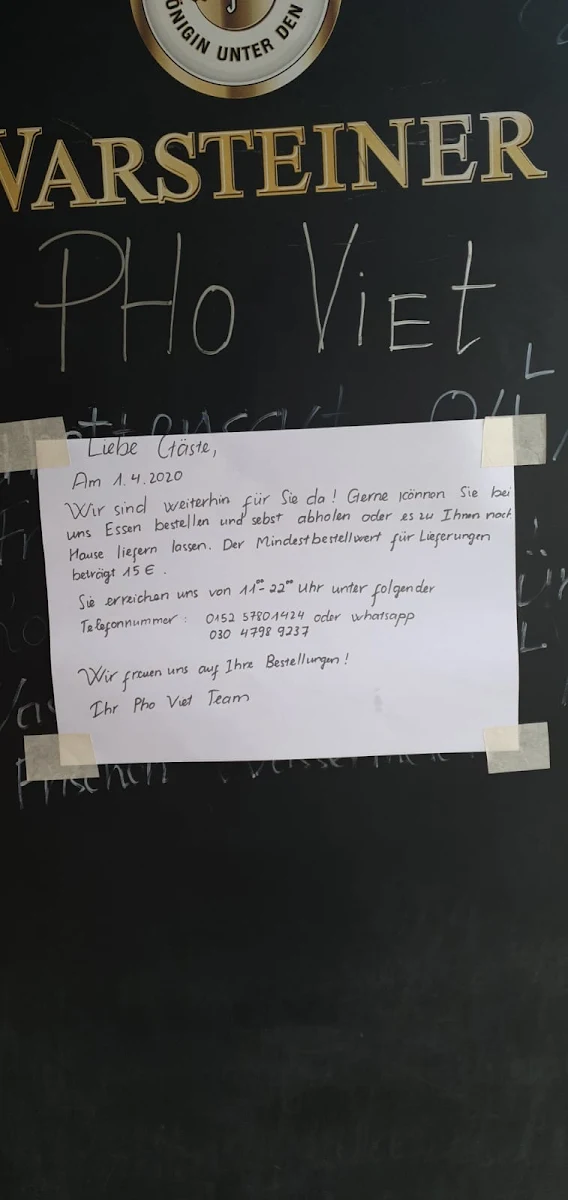 KÖNIGIN UNTER DEN
WARSTEINER
PHO ViEt
Liebe Gäste,
Am 1.4.2020
Wir sind weiterhin für Sie da! Gerne können Sie bei
uns Essen bestellen und sebst abholen oder es zu Ihnen nach
Hause liefern lassen. Der Mindestbestellwert für Lieferungen
beträgt 15 €.
Sie erreichen uns von 11⁰⁰- 22⁰⁰ Uhr unter folgender
Telefonnummer : 0152 57801424 oder whatsapp
030 4798 9237
Wir freuen uns auf Ihre Bestellungen!
Ihr Pho Viet Team